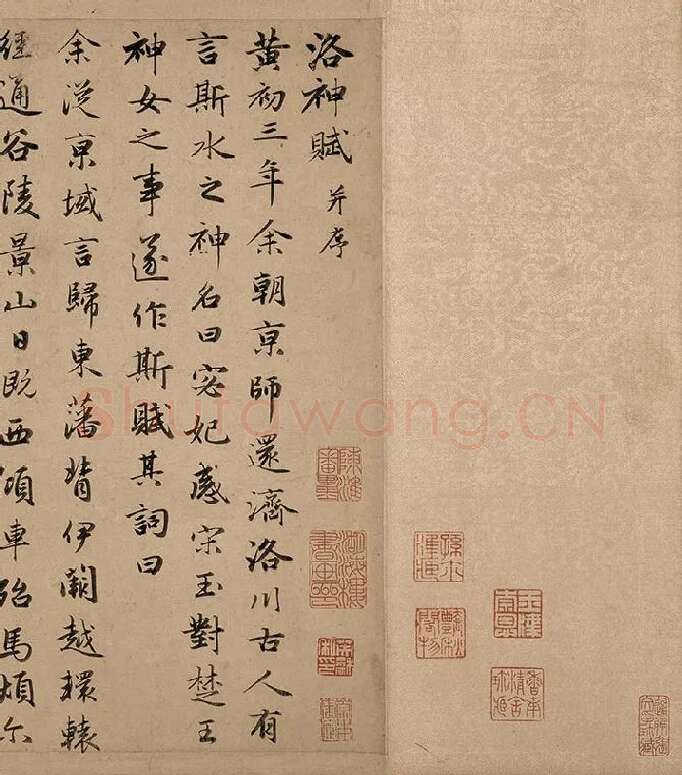 洛神賦 并序
黃初三年余朝京師還濟洛川古人有
言斯水之神名曰宓妃感宋玉對楚王
神女之事遂作斯賦其詞曰
余從京域言歸東藩背伊闕越轘轅
經通谷陵景山日既西傾車殆馬煩尔
Shufawang.CN